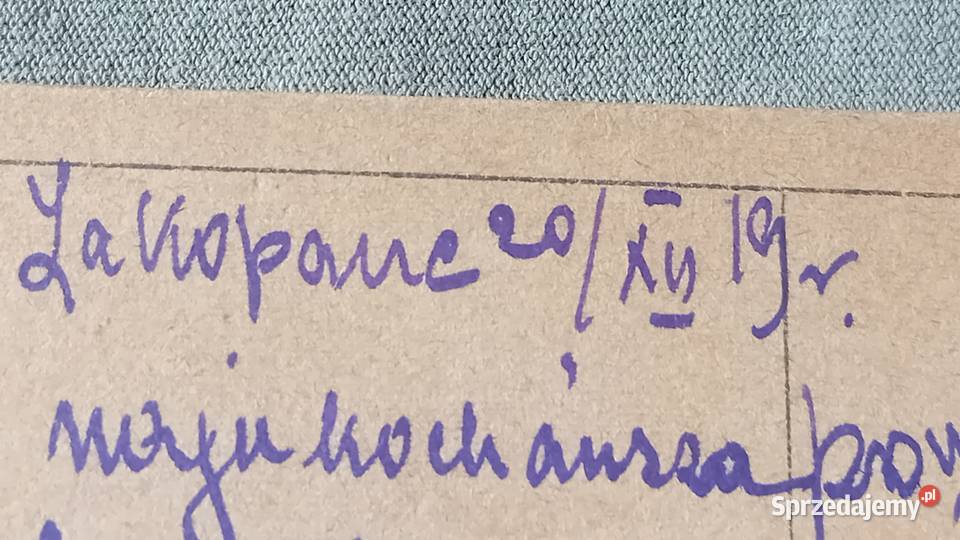 Zakopane 20/XII 19 r.
najukochańsza
Sprzedajemy.pl